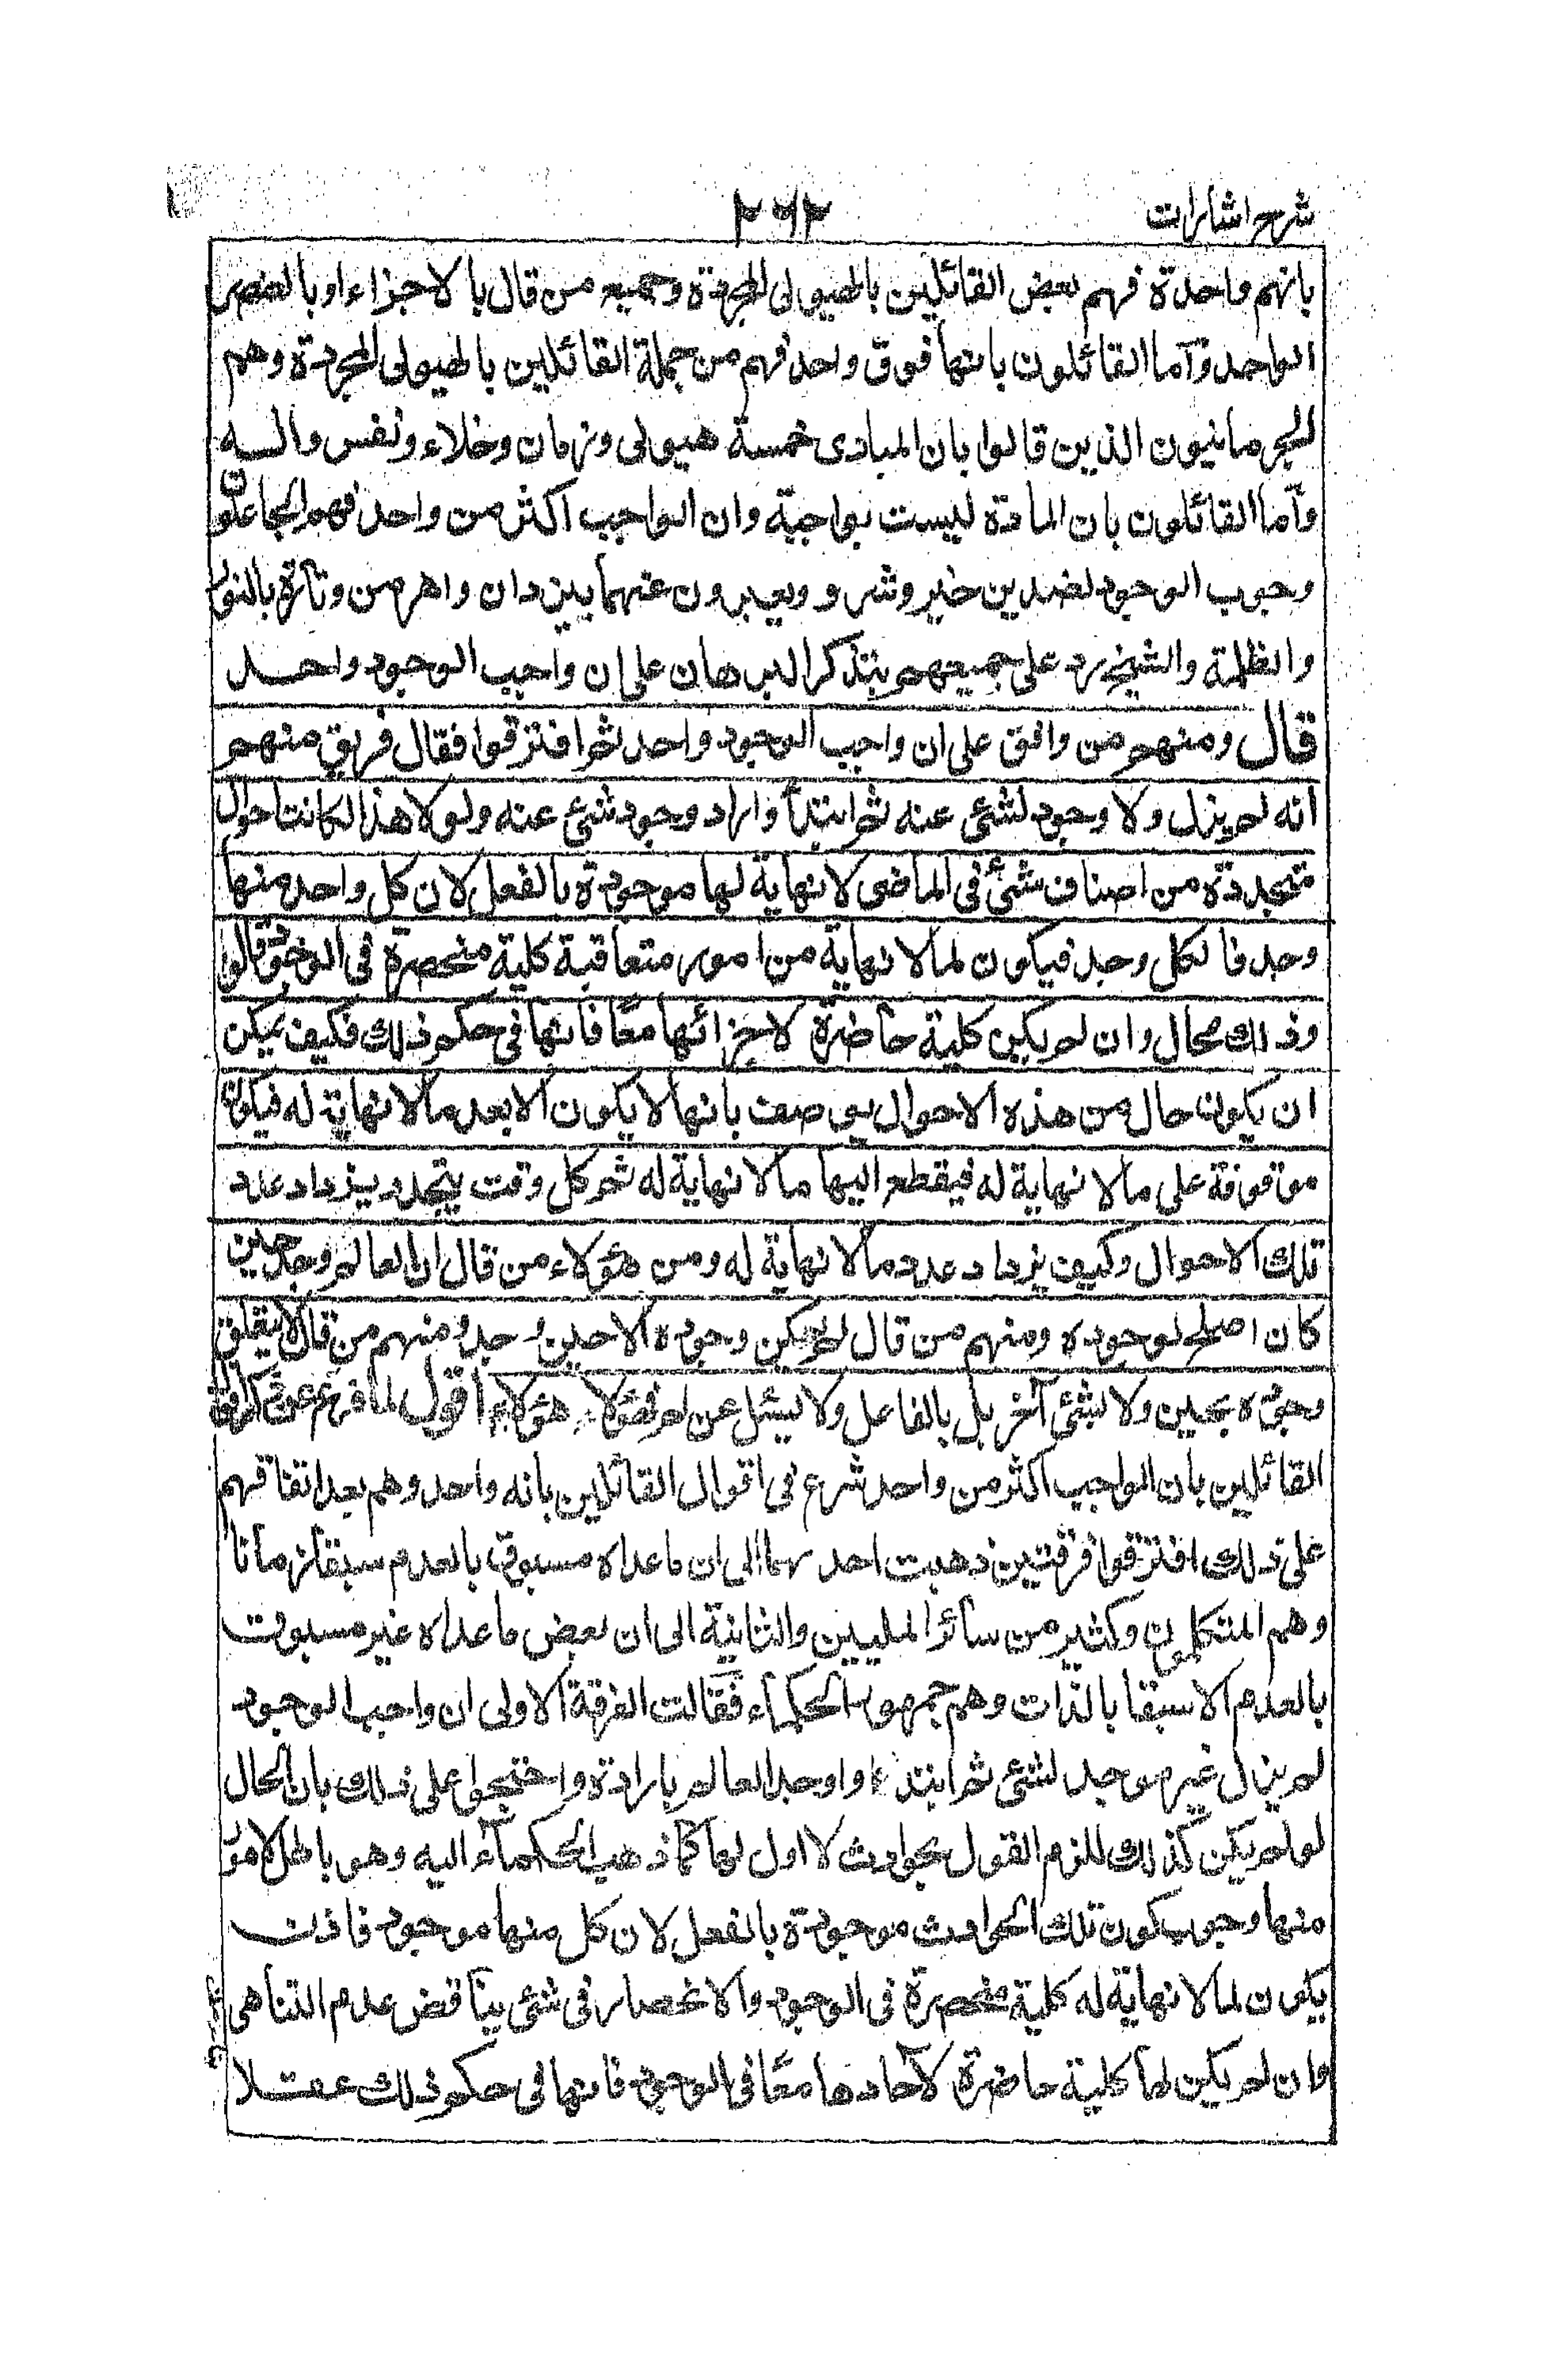 شرح اشارات
٢٦٢
بانهم واحدة فهم بعض القائلين بالهيولى المجردة وجميع من قال بالاجزاء او بالعنصر
الواحد وآما القائلون بانها فوق واحد فهم من جملة القائلين بالهيولى المجردة وهم
الحرمانيون الذين قالوا بان المبادى خمسة هيولى وزمان وخلاء ونفس واله
وآما القائلون بان المادة ليست بواجبة وان الواجب اكثر من واحد فهم الجاعلون
وجوب الوجود لضدين خير وشر و ويعبرون عنهما بيزدان واهرمن وتارة بالنور
والظلمة والشيخ رد على جميعهم بتذكر البرهان على ان واجب الوجود واحد
قال ومنهم من وافق على ان واجب الوجود واحد ثم افترقوا فقال فريق منهم
انه لم يزل ولا وجود لشئ عنه ثم ابتدأ واراد وجود شئ عنه ولولا هذا لكانت احوال
متجددة من اصناف شئ فى الماضى لا نهاية لها موجودة بالفعل لان كل واحد منها
وجد فالكل وجد فيكون لما لا نهاية من امور متعاقبة كلية منحصرة فى الوجود قالوا
وذلك محال وان لم يكن كلية حاضرة لاجزائها معًا فانها فى حكم ذلك فكيف يمكن
ان يكون حال من هذه الاحوال يوصف بانها لا يكون الا بعد ما لا نهاية له فيكون
موقوفة على ما لا نهاية له فيقطع اليها ما لا نهاية له ثم كل وقت يتجدد يزداد عدد
تلك الاحوال وكيف يزداد عدد ما لا نهاية له ومن هؤلاء من قال ان العالم وجد حين
كان اصلح لوجوده ومنهم من قال لم يمكن وجوده الا حين وجد ومنهم من قال لا يتعلق
وجوده بحين ولا بشئ آخر بل بالفاعل ولا يسئل عن لم فهؤلاء هؤلاء اقول لما فرغ عن
القائلين بان الواجب اكثر من واحد شرع فى اقوال القائلين بانه واحد وهم بعد اتفاقهم
على ذلك افترقوا فرقتين ذهبت احدهما الى ان ما عداه مسبوق بالعدم سبقا زمانا
وهم المتكلمون وكثير من سائر المليين والثانية الى ان بعض ما عداه غير مسبوق
بالعدم الا سبقا بالذات وهم جمهور الحكماء فقالت الفرقة الاولى ان واجب الوجود
لم يزل غير موجد لشئ ثم ابتدء واوجد العالم بارادة واحتجوا على ذلك بان الحال
لو لم يكن كذلك للزم القول بحوادث لا اول لها كما ذهب الحكماء اليه وهو باطل لامور
منها وجوب كون تلك الحوادث موجودة بالفعل لان كل منها موجود فاذن
يكون لما لا نهاية له كلية منحصرة فى الوجود والانحصار فى شئ يناقض عدم التناهى
وان لم يكن لها كلية حاضرة لآحادها معًا فى الوجود فانها فى حكم ذلك عقلا